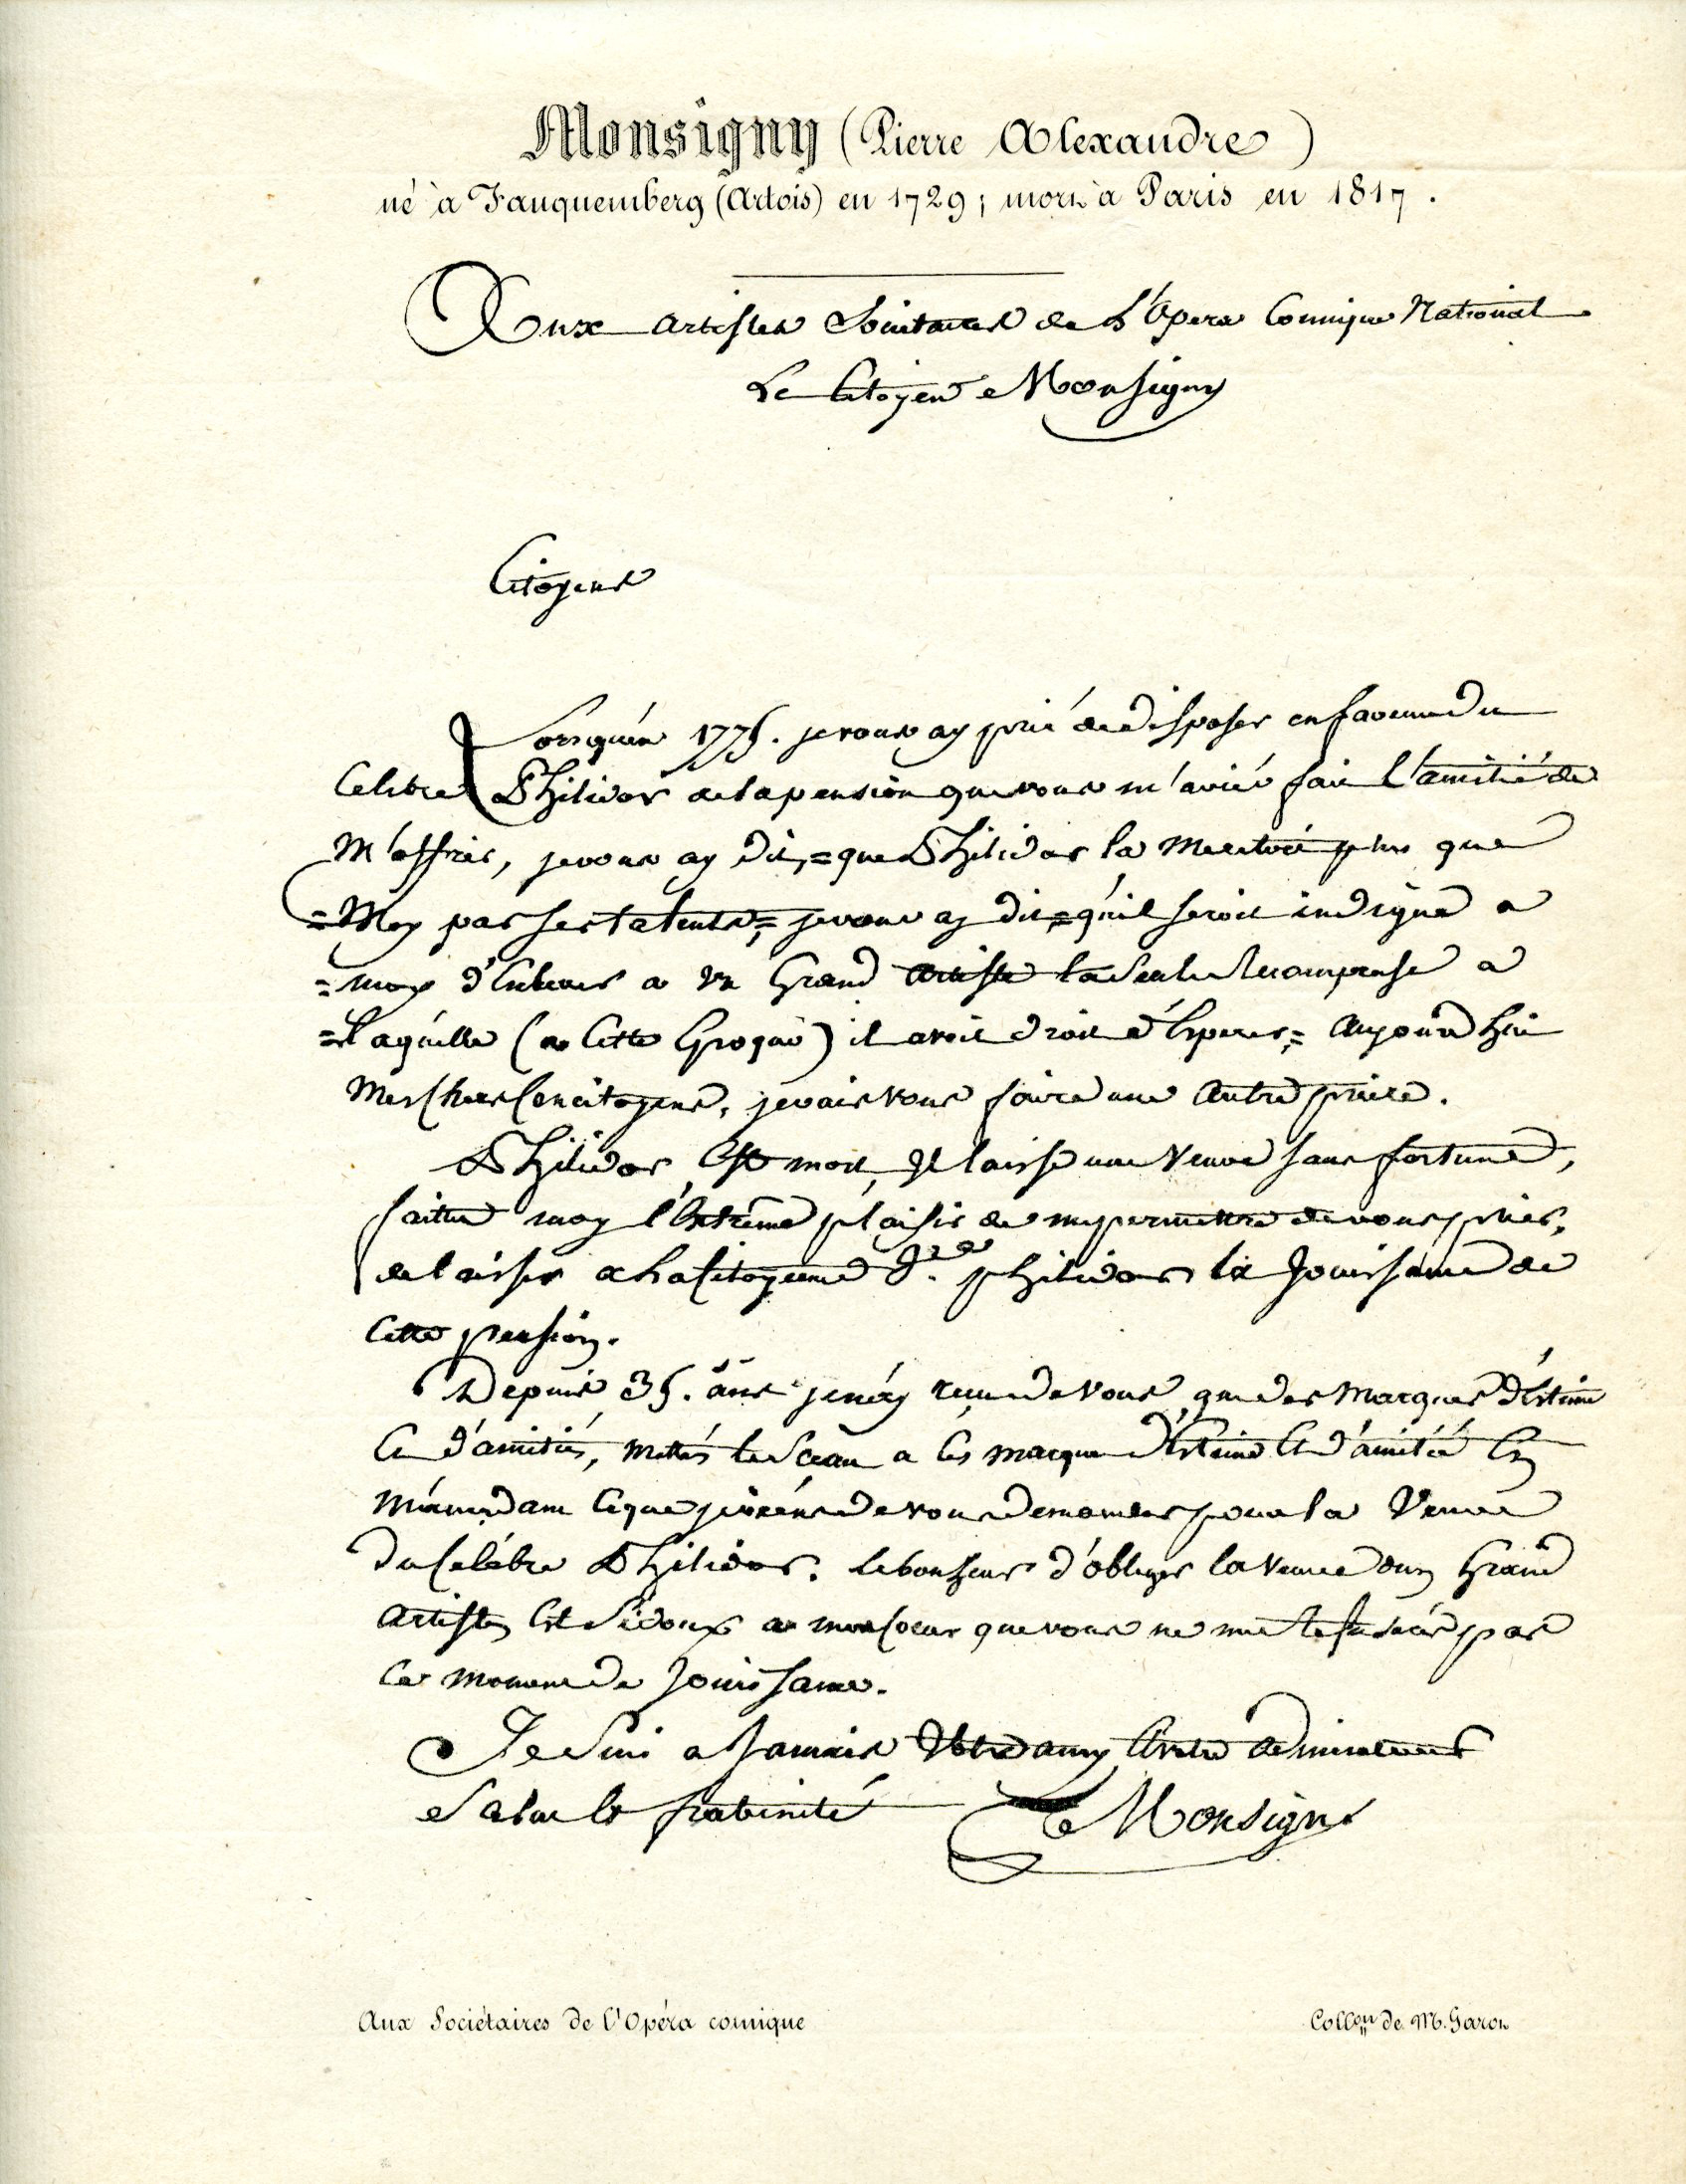 Monsigny (Pierre Alexandre)
né à Fauquemberg (Artois) en 1729; mort à Paris en 1817.
Aux Artistes Societaires de L'Opera Comique National
Le Citoyen Monsigny
Citoyens
Lorsqu'én 1775. je vous ay prié de disposer en faveur du
Celebre Philidor de la pension que vous m'aviés fait l'amitié de
M'offrir, je vous ay dit, = que Philidor la meritoit plus que
= Moy par ses talents =, je vous ay dit = qu'il seroit indigne a
= moy d'Enlever a un Grand Artiste la Seule Recompense a
= Laquelle (a Cette Epoque) il avoit droit d'Esperer = Aujourd'hui
Mes Chers Concitoyens, je vais vous faire une Autre priere.
Philidor Est mort, Il laisse une Veuve sans fortune,
faittes moy l'Extrême plaisir de me permettre de vous prier,
de laisser a la Citoyenne Ve. philidor la Jouissance de
Cette pension.
Depuis 35. ans je n'ay reçu de vous que des Marques d'Estime
Et d'amitiés, mettés le Sceau a Ces marques d'Estime Et d'amitié En
M'acordant Ce que je viens de vous demander pour la Veuve
du Celébre Philidor. le bonheur d'obliger la Veuve d'un Grand
Artiste Est Si doux a mon Coeur que vous ne me refuserés pas
Ce moment de Jouissance.
Je Suis a Jamais Votre amy Et votre Admirateur
Salut Et fraternité Monsigny
Aux Sociétaires de l'Opéra comique
Collon de M. Garon